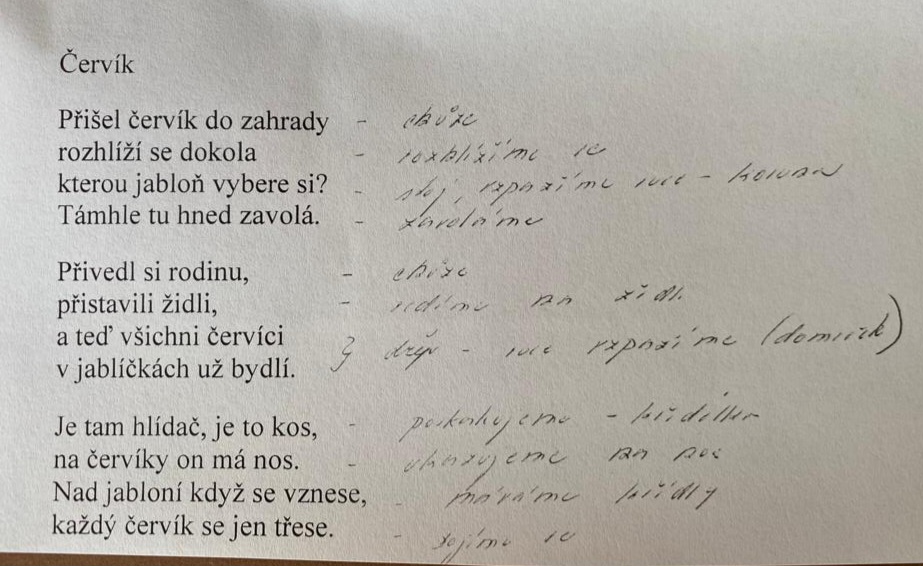 Červík
Přišel červík do zahrady - chůze
rozhlíží se dokola - rozhlížíme se
kterou jabloň vybere si? - stoj, vzpažíme ruce - koruna
Támhle tu hned zavolá. - zavoláme
Přivedl si rodinu, - chůze
přistavili židli, - sedíme na židli
a teď všichni červíci } dřep - ruce vzpažíme (domeček)
v jablíčkách už bydlí.
Je tam hlídač, je to kos, - poskakujeme - křidélka
na červíky on má nos. - ukazujeme na nos
Nad jabloní když se vznese, - máváme křídly
každý červík se jen třese. - se